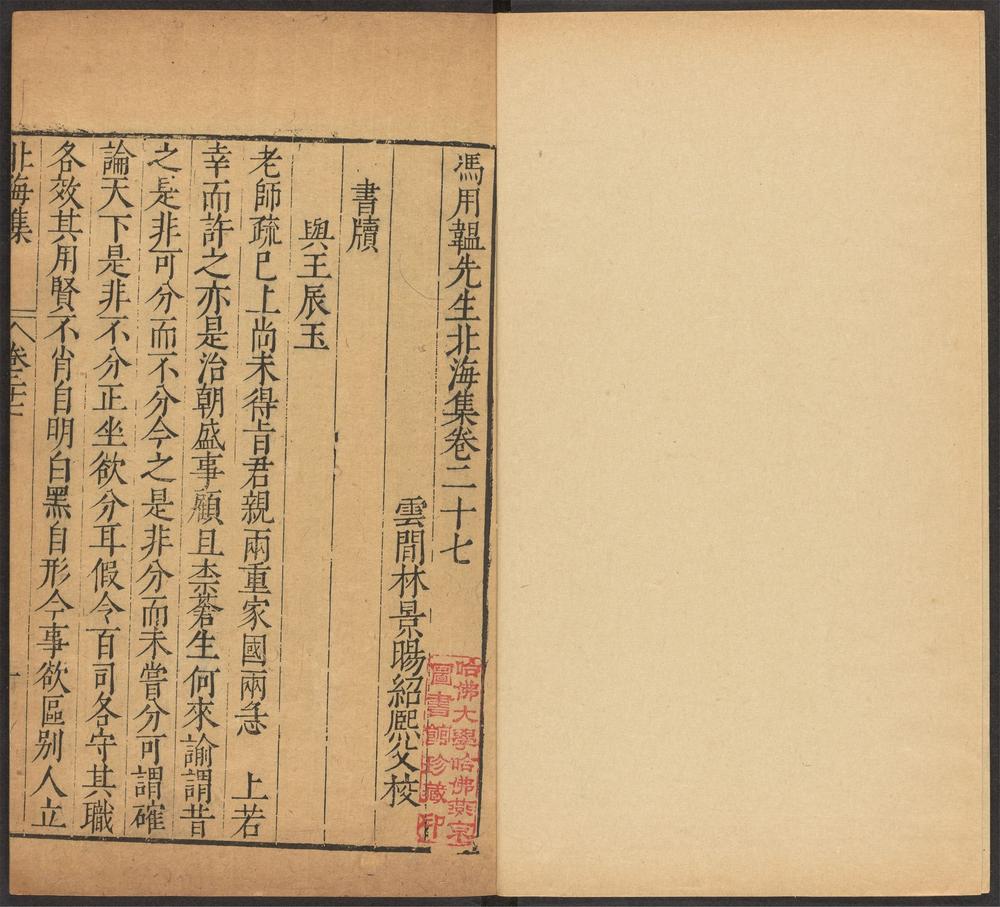 馮用韞先生北海集卷二十七
雲間林景暘紹熙父校
書牘
與王辰玉
老師疏已上尚未得旨君親兩重家國兩急 上若
幸而許之亦是治朝盛事顧且柰蒼生何來諭謂昔
之是非可分而不分今之是非分而未嘗分可謂確
論天下是非不分正坐欲分耳假令百司各守其職
各效其用賢不肖自明白黑自形今事欲區別人立
北海集
卷二十七
一
哈佛大學哈佛燕京
圖書館珍藏印